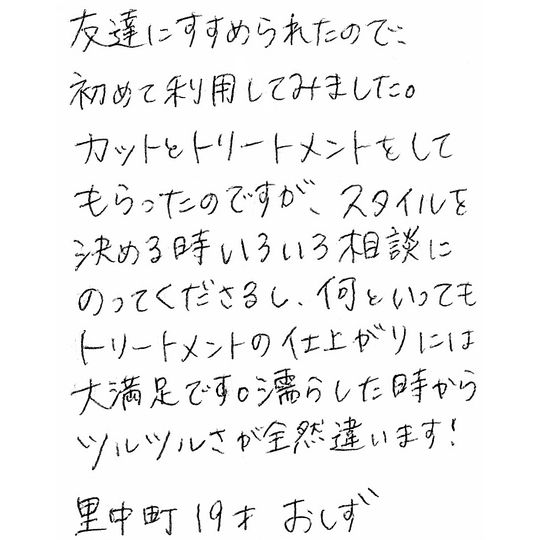 友達にすすめられたので、
初めて利用してみました。
カットとトリートメントをして
もらったのですが、スタイルを
決める時いろいろ相談に
のってくださるし、何といっても
トリートメントの仕上がりには
大満足です。濡らした時から
ツルツルさが全然違います!
里中町 19才 おしず